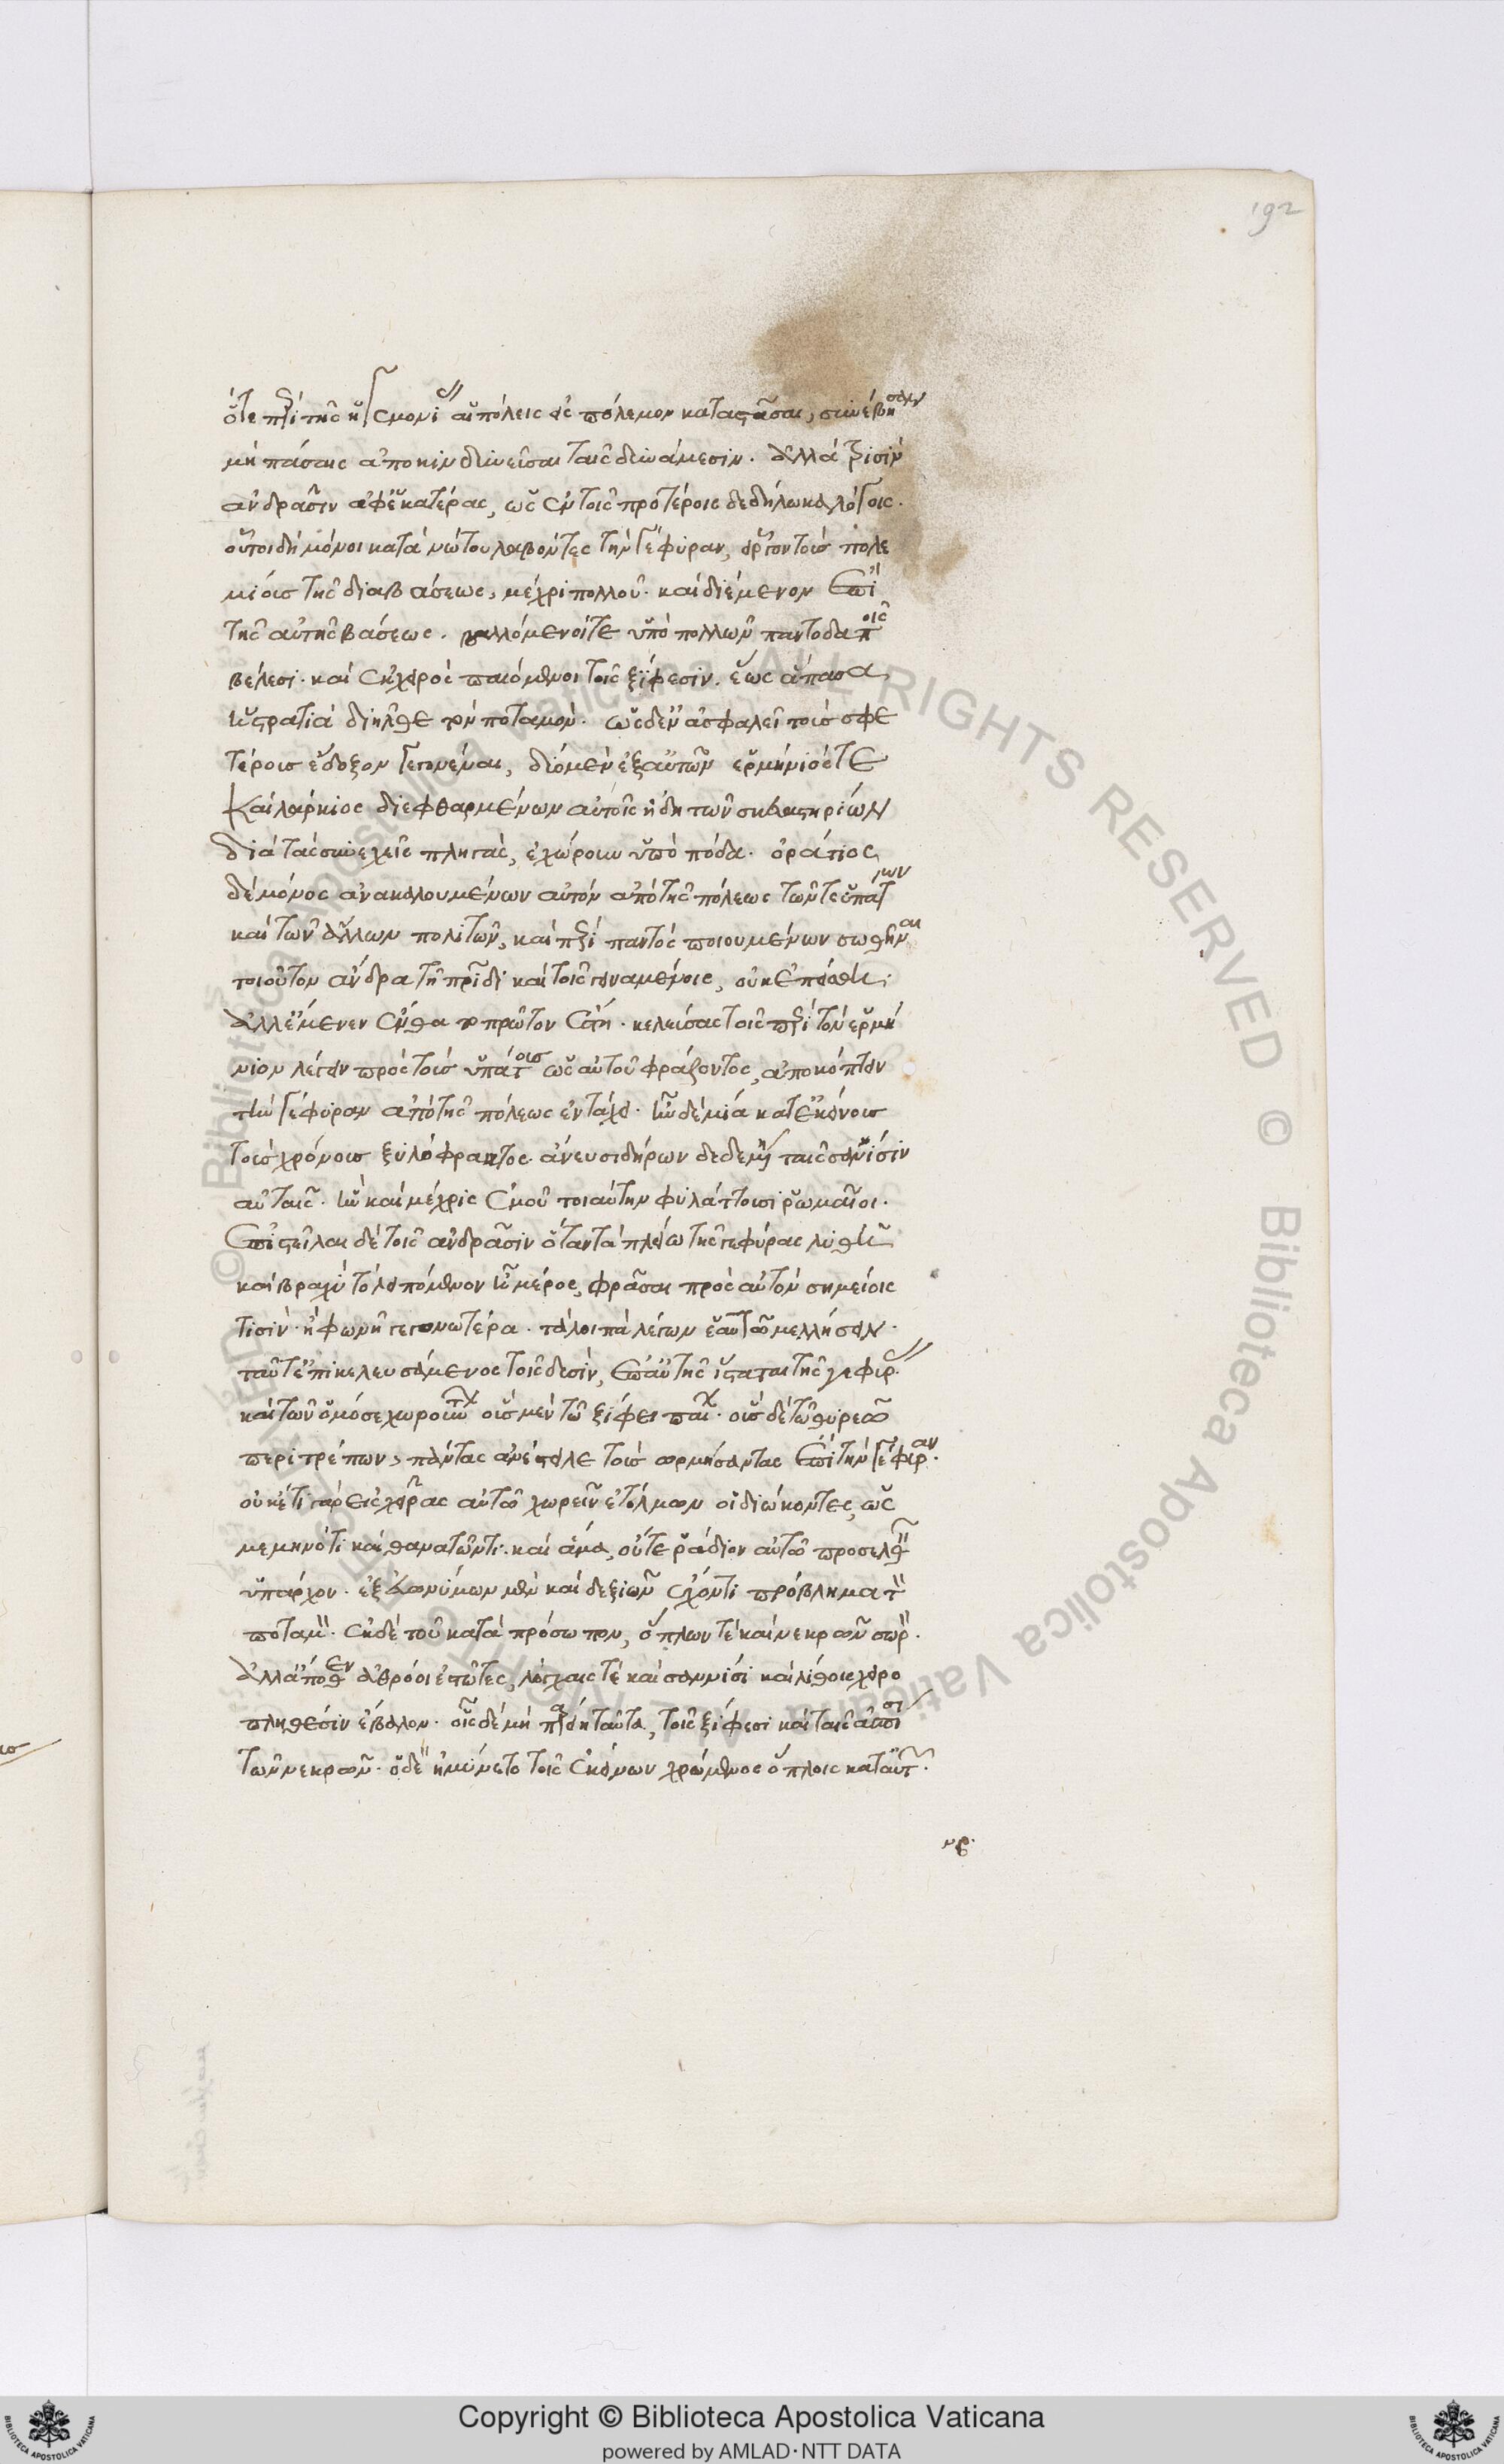 192
ὅτε περὶ τῆς ἡγεμονίας αἱ πόλεις εἰς πόλεμον κατασταῖσαι, συνέβησαν
μὴ πάσαις ἀποκινδυνεῦσαι ταῖς δυνάμεσιν. ἀλλὰ τρισὶν
ἀνδράσιν ἀφ' ἑκατέρας, ὡς ἐν τοῖς προτέροις δεδήλωκα λόγοις.
οὗτοι δὴ μόνοι κατὰ νώτου λαβόντες τὴν γέφυραν, εἶργον τοὺς πολε
μίους τῆς διαβάσεως, μέχρι πολλοῦ. καὶ διέμενον ἐπὶ
τῆς αὐτῆς βάσεως. βαλλόμενοί τε ὑπὸ πολλῶν παντοδαποῖς
βέλεσι. καὶ ἐκ χειρὸς παιόμενοι τοῖς ξίφεσιν. ἕως ἅπασα
ἡ στρατιὰ διῆλθε τὸν ποταμόν. ὡς δ' ἐν ἀσφαλεῖ τοὺς σφε
τέρους ἔδοξον γεγονέναι, δύο μὲν ἐξ αὐτῶν ἑρμήνιός τε
καὶ λάρκιος διεφθαρμένων αὐτοῖς ἤδη τῶν σκεπαστηρίων
διὰ τὰς συνεχεῖς πληγὰς, ἐχώρουν ὑπὸ πόδα. ὁράτιος
δὲ μόνος ἀνακαλουμένων αὐτὸν ἀπὸ τῆς πόλεως τῶν τε ὑπάτων
καὶ τῶν ἄλλων πολιτῶν, καὶ περὶ παντὸς ποιουμένων σωθῆναι
τοιοῦτον ἄνδρα τῇ πατρίδι καὶ τοῖς γειναμένοις, οὐκ ἐπείσθη.
ἀλλ' ἔμενεν ἔνθα τὸ πρῶτον ἔστη. κελεύσας τοῖς περὶ τὸν ἑρμή
νιον λέγειν πρὸς τοὺς ὑπάτους ὡς αὐτοῦ φράζοντος, ἀποκόπτειν
τὴν γέφυραν ἀπὸ τῆς πόλεως ἐν τάχει. ἦν δὲ μία κατ' ἐκείνους
τοὺς χρόνους ξυλόφρακτος ἄνευ σιδήρων δεδεμένη ταῖς σανίσιν
αὐταῖς. ἣν καὶ μέχρις ἐμοῦ τοιαύτην φυλάττουσι ῥωμαῖοι.
ἐπιστεῖλαι δὲ τοῖς ἀνδράσιν ὅταν τὰ πλείω τῆς γεφύρας λυθῇ
καὶ βραχὺ τὸ λειπόμενον ᾖ μέρος, φράσαι πρὸς αὐτὸν σημείοις
τισὶν. ἢ φωνῇ γεγονωτέρα. τὰ λοιπὰ λέγων ἑαυτῷ μελλήσειν.
ταῦτ' ἐπικελευσάμενος τοῖς δυσὶν, ἐπ' αὐτῆς ἵσταται τῆς γεφύρας.
καὶ τῶν ὁμόσε χωρούντων οὓς μὲν τῷ ξίφει παίων. οὓς δὲ τῷ θυρεῷ
περιτρέπων, πάντας ἀνέστειλε τοὺς ὁρμήσαντας ἐπὶ τὴν γέφυραν.
οὐκέτι γὰρ εἰς χεῖρας αὐτῷ χωρεῖν ἐτόλμων οἱ διώκοντες, ὡς
μεμηνότι καὶ θανατῶντι. καὶ ἅμα, οὔτε ῥᾴδιον αὐτῷ προσελθεῖν
ὑπάρχον. ἐξ εὐωνύμων μὲν καὶ δεξιῶν ἔχοντι πρόβλημα τὸν
ποταμὸν. ἐκ δὲ τοῦ κατὰ πρόσωπον, ὅπλων τὲ καὶ νεκρῶν σωρὸν.
ἀλλ' ἄποθεν ἀθρόοι ἑστῶτες, λόγχαις τὲ καὶ σαυνίοις καὶ λίθοις χειρο
πληθέσιν ἔβαλον. οἷς δὲ μὴ παρείη ταῦτα, τοῖς ξίφεσι καὶ ταῖς ἀσπίσι
τῶν νεκρῶν. ὁ δὲ ἠμύνετο τοῖς ἐκείνων χρώμενος ὅπλοις κατ' αὐτῶν.